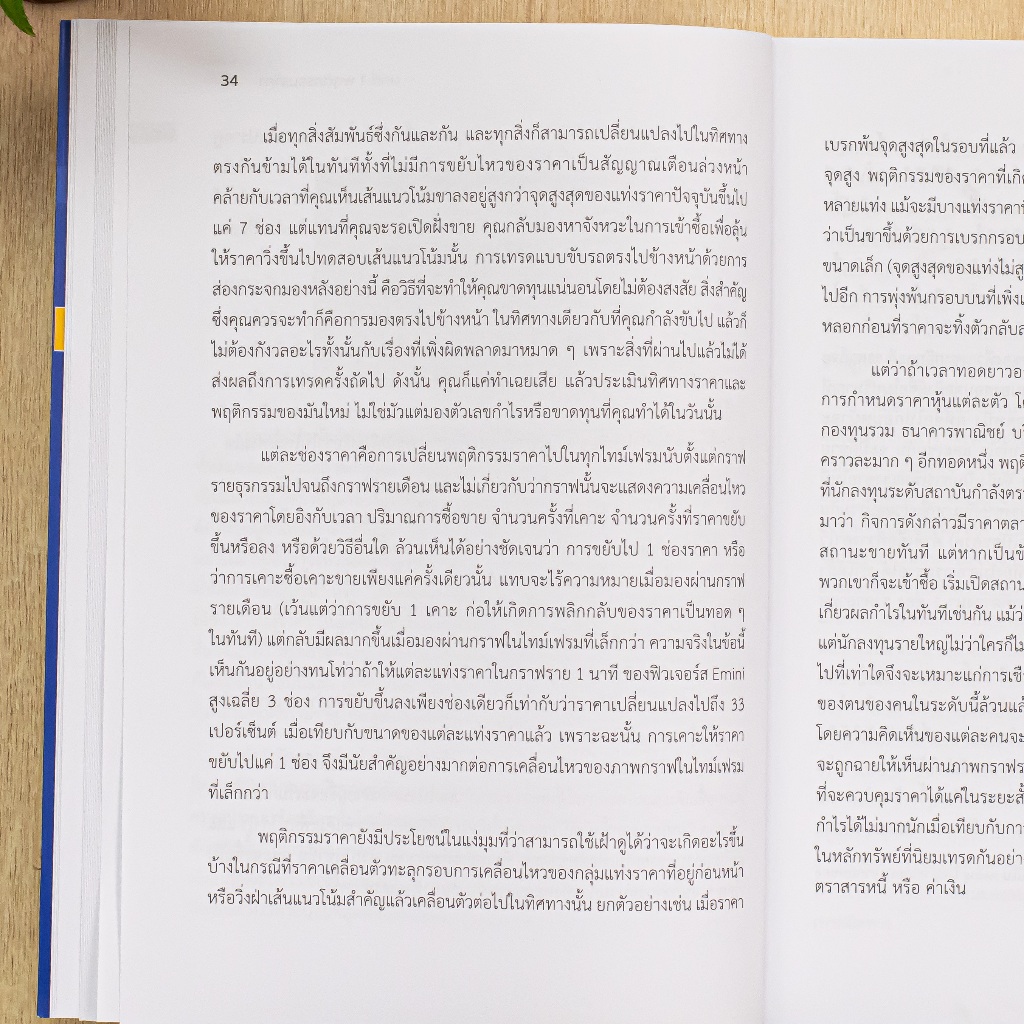 34
เมื่อทุกสิ่งสัมพันธ์ซึ่งกันและกัน และทุกสิ่งก็สามารถเปลี่ยนแปลงไปในทิศทาง
ตรงกันข้ามได้ในทันทีทั้งที่ไม่มีการขยับไหวของราคาเป็นสัญญาณเตือนล่วงหน้า
คล้ายกับเวลาที่คุณเห็นเส้นแนวโน้มขาลงอยู่สูงกว่าจุดสูงสุดของแท่งราคาปัจจุบันขึ้นไป
แค่ 7 ช่อง แต่แทนที่คุณจะรอเปิดฝั่งขาย คุณกลับมองหาจังหวะในการเข้าซื้อเพื่อลุ้น
ให้ราคาวิ่งขึ้นไปทดสอบเส้นแนวโน้มนั้น การเทรดแบบขับรถตรงไปข้างหน้าด้วยการ
ส่องกระจกมองหลังอย่างนี้ คือวิธีที่จะทำให้คุณขาดทุนแน่นอนโดยไม่ต้องสงสัย สิ่งสำคัญ
ซึ่งคุณควรจะทำก็คือการมองตรงไปข้างหน้า ในทิศทางเดียวกับที่คุณกำลังขับไป แล้วก็
ไม่ต้องกังวลอะไรทั้งนั้นกับเรื่องที่เพิ่งผิดพลาดมาหมาด ๆ เพราะสิ่งที่ผ่านไปแล้วไม่ได้
ส่งผลถึงการเทรดครั้งถัดไป ดังนั้น คุณก็แค่ทำเฉยเสีย แล้วประเมินทิศทางราคาและ
พฤติกรรมของมันใหม่ ไม่ใช่มัวแต่มองตัวเลขกำไรหรือขาดทุนที่คุณทำได้ในวันนั้น
แต่ละช่องราคาคือการเปลี่ยนพฤติกรรมราคาไปในทุกไทม์เฟรมนับตั้งแต่กราฟ
รายธุรกรรมไปจนถึงกราฟรายเดือน และไม่เกี่ยวกับว่ากราฟนั้นจะแสดงความเคลื่อนไหว
ของราคาโดยอิงกับเวลา ปริมาณการซื้อขาย จำนวนครั้งที่เคาะ จำนวนครั้งที่ราคาขยับ
ขึ้นหรือลง หรือด้วยวิธีอื่นใด ล้วนเห็นได้อย่างชัดเจนว่า การขยับไป 1 ช่องราคา หรือ
ว่าการเคาะซื้อเคาะขายเพียงแค่ครั้งเดียวนั้น แทบจะไร้ความหมายเมื่อมองผ่านกราฟ
รายเดือน (เว้นแต่ว่าการขยับ 1 เคาะ ก่อให้เกิดการพลิกกลับของราคาเป็นทอด ๆ
ในทันที) แต่กลับมีผลมากขึ้นเมื่อมองผ่านกราฟในไทม์เฟรมที่เล็กกว่า ความจริงในข้อนี้
เห็นกันอยู่อย่างทนโท่ว่าถ้าให้แต่ละแท่งราคาในกราฟราย 1 นาที ของฟิวเจอร์ส Emini
สูงเฉลี่ย 3 ช่อง การขยับขึ้นลงเพียงช่องเดียวก็เท่ากับว่าราคาเปลี่ยนแปลงไปถึง 33
เปอร์เซ็นต์ เมื่อเทียบกับขนาดของแต่ละแท่งราคาแล้ว เพราะฉะนั้น การเคาะให้ราคา
ขยับไปแค่ 1 ช่อง จึงมีนัยสำคัญอย่างมากต่อการเคลื่อนไหวของภาพกราฟในไทม์เฟรม
ที่เล็กกว่า
พฤติกรรมราคายังมีประโยชน์ในแง่มุมที่ว่าสามารถใช้เฝ้าดูได้ว่าจะเกิดอะไรขึ้น
บ้างในกรณีที่ราคาเคลื่อนตัวทะลุกรอบการเคลื่อนไหวของกลุ่มแท่งราคาที่อยู่ก่อนหน้า
หรือวิ่งฝ่าเส้นแนวโน้มสำคัญแล้วเคลื่อนตัวต่อไปในทิศทางนั้น ยกตัวอย่างเช่น เมื่อราคา
เบรกพ้นจุดสูงสุดในรอบที่แล้ว
จุดสูง พฤติกรรมของราคาที่เกิ
หลายแท่ง แม้จะมีบางแท่งราคา
ว่าเป็นขาขึ้นด้วยการเบรกกรอบ
ขนาดเล็ก (จุดสูงสุดของแท่งไม่สู
ไปอีก การพุ่งพ้นกรอบบนที่เพิ่ง
หลอกก่อนที่ราคาจะทิ้งตัวกลับ
แต่ว่าถ้าเวลาทอดยาวอ
การกำหนดราคาหุ้นแต่ละตัว
กองทุนรวม ธนาคารพาณิชย์ บ
คราวละมาก ๆ อีกทอดหนึ่ง พฤติ
ที่นักลงทุนระดับสถาบันกำลังตร
มาว่า กิจการดังกล่าวมีราคาตลา
สถานะขายทันที แต่หากเป็นข้
พวกเขาก็จะเข้าซื้อ เริ่มเปิดสถาน
เกี่ยวผลกำไรในทันทีเช่นกัน แม้ว่
แต่นักลงทุนรายใหญ่ไม่ว่าใครก็ไม่
ไปที่เท่าใดจึงจะเหมาะแก่การเ
ของตนของคนในระดับนี้ล้วนแ
โดยความคิดเห็นของแต่ละคนจะ
จะถูกฉายให้เห็นผ่านภาพกราฟร
ที่จะควบคุมราคาได้แค่ในระยะสั้
กำไรได้ไม่มากนักเมื่อเทียบกับกา
ในหลักทรัพย์ที่นิยมเทรดกันอย่า
ตราสารหนี้ หรือ ค่าเงิน